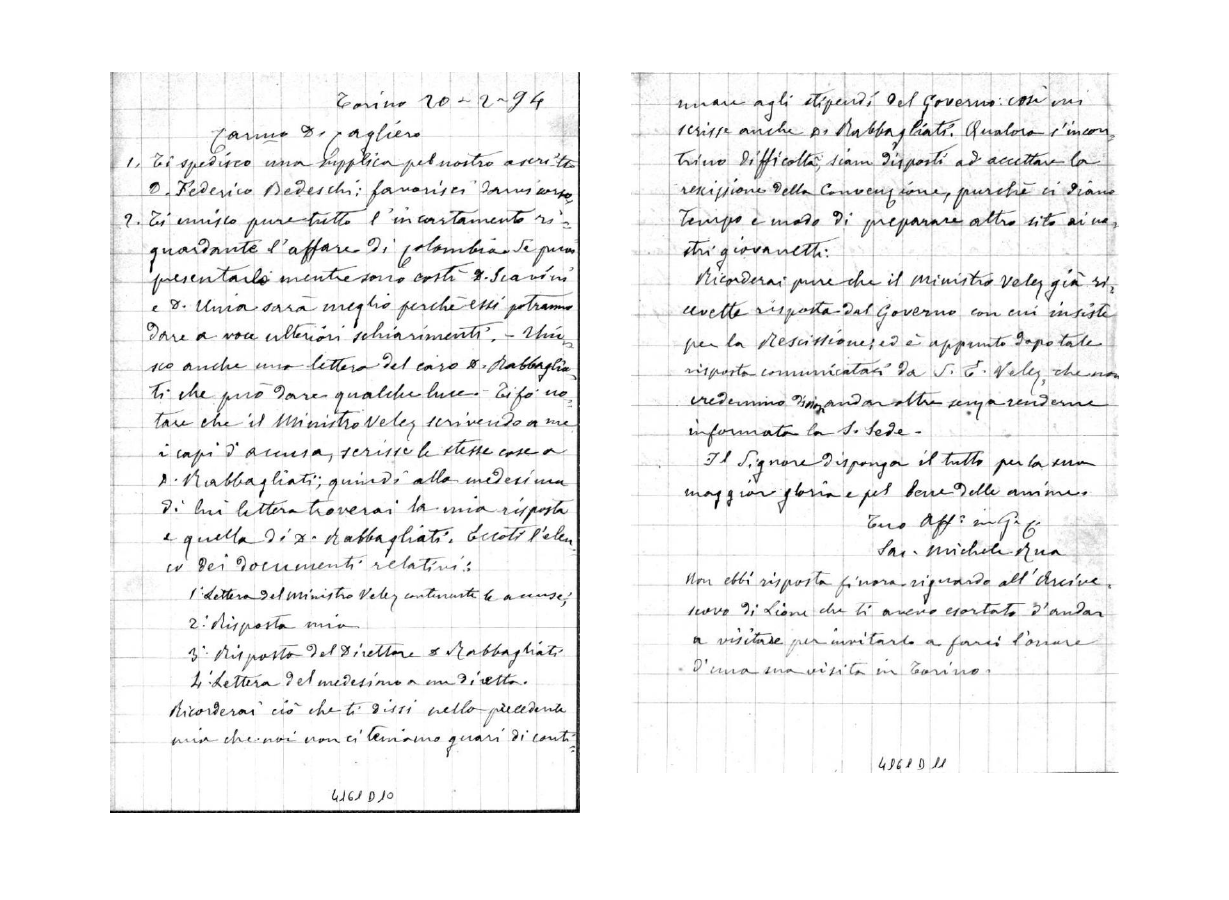 Torino 20-2-94
Car.mo D. Cagliero
1. Ti spedisco una supplica pel nostro ascritto
D. Federico Bedeschi; favorisci darvi corso.
2. Ti unisco pure tutto l'incartamento ri=
guardante l'affare di Colombia. Se puoi
presentarlo mentre sono costì D. Scavini
e D. Unia sarà meglio perchè essi potranno
dare a voce ulteriori schiarimenti. - Uni=
sco anche una lettera del caro D. Rabbaglia=
ti che può dare qualche luce - Ti fo no=
tare che il Ministro Velez scrivendo a me
i capi d'accusa, scrisse le stesse cose a
D. Rabbagliati; quindi alla medesima
di lui lettera troverai la mia risposta
e quella di D. Rabbagliati. Eccoti l'elen=
co dei documenti relativi:
1° Lettera del Ministro Velez contenente le accuse;
2° Risposta mia
3° Risposta del Direttore D. Rabbagliati
4° Lettera del medesimo a me diretta.
Ricorderai ciò che ti dissi nella precedente
mia che noi non ci teniamo guari di conti=
4161 D 10
nuare agli stipendi del Governo: così mi
scrisse anche D. Rabbagliati. Qualora s'incon=
trino difficoltà, siam disposti ad accettare la
rescissione della Convenzione, purchè ci diano
tempo e modo di preparare altro sito ai no=
stri giovanetti.
Ricorderai pure che il Ministro Velez già ri=
cevette risposta dal Governo con cui insiste
per la Rescissione; ed è appunto dopo tale
risposta comunicataci da S. E. Velez, che non
credemmo andar oltre senza renderne
informata la S. Sede -
Il Signore disponga il tutto per la sua
maggior gloria e pel bene delle anime.
Tuo Aff.° in G. e
Sac. Michele Rua
Non ebbi risposta finora riguardo all'Arcive=
scovo di Lione che ti aveva esortato d'andar
a visitare per invitarlo a farci l'onore
d'una sua visita in Torino.
4161 D 11